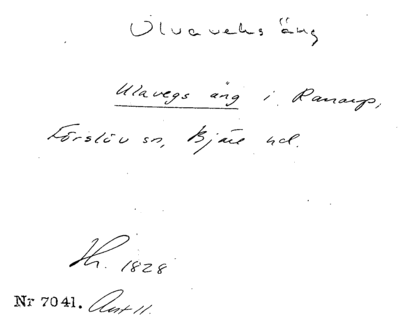 Ulvaveks äng
Ulavegs äng i Ranarp,
Förslöv sn, Bjäre hd.
Th. 1828
Nr 7041. Ant 11.